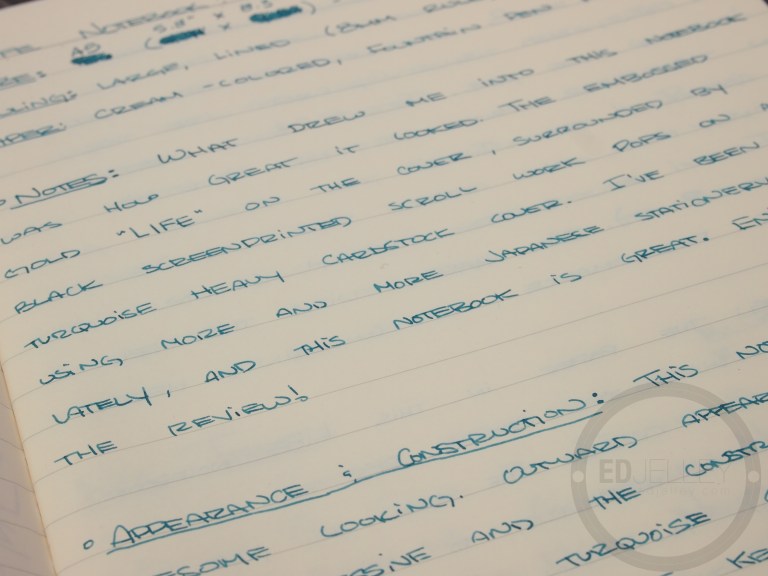 NOTEBOOK
A5 (5.8" x 8.3")
LING: LARGE, LINED (8MM RUL
PER: CREAM-COLORED, FOUNTAIN PEN
NOTES: WHAT DREW ME INTO THIS NOTEBOOK
WAS HOW GREAT IT LOOKED. THE EMBOSSED
GOLD "LIFE" ON THE COVER, SURROUNDED BY
BLACK SCREENPRINTED SCROLL WORK POPS ON A
TURQUOISE HEAVY CARDSTOCK COVER. I'VE BEEN
USING MORE AND MORE JAPANESE STATIONERY
LATELY, AND THIS NOTEBOOK IS GREAT. EN
THE REVIEW!
APPEARANCE & CONSTRUCTION: THIS NO
ESOME LOOKING. OUTWARD APPEAR
SIVE AND THE CONSTR
TURQUOISE
KE
EDJELLEY